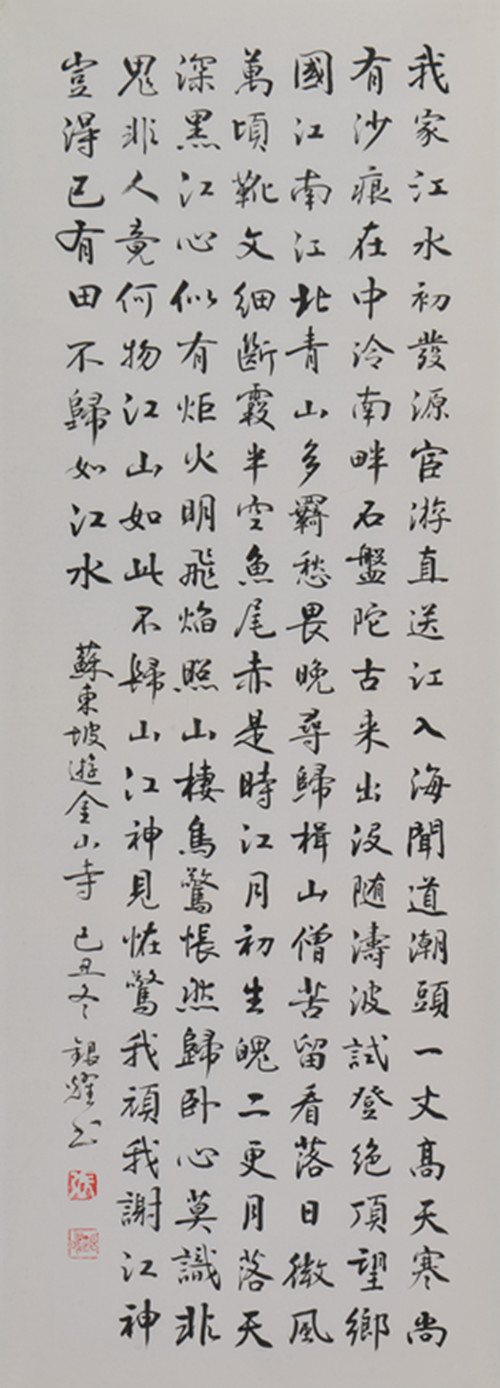 我家江水初發源宦游直送江入海聞道潮頭一丈高天寒尚
有沙痕在中泠南畔石盤陀古来出没随濤波試登絶頂望鄉
國江南江北青山多羈愁畏晚尋歸楫山僧苦留看落日微風
萬頃靴文細斷霞半空魚尾赤是時江月初生魄二更月落天
深黑江心似有炬火明飛焰照山棲鳥驚悵然歸卧心莫識非
鬼非人竟何物江山如此不歸山江神見恠驚我頑我謝江神
豈得已有田不歸如江水 蘇東坡遊金山寺 己丑冬 銀耀书